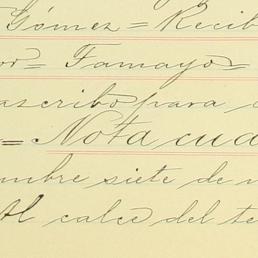 Gómez = Recib
or = Tamayo =
ascribo para
= Nota cua
mbre siete de
Al calce del te